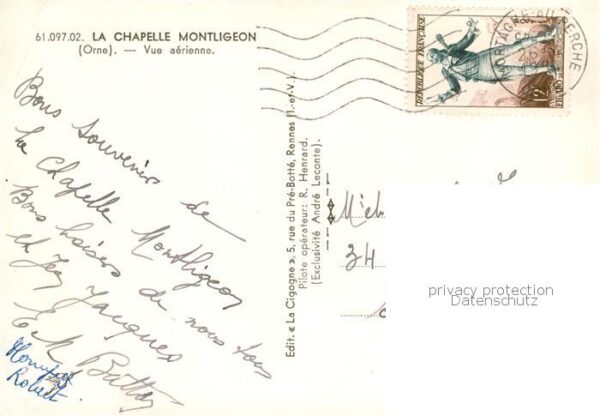 61.097.02. LA CHAPELLE MONTLIGEON
(Orne). — Vue aérienne.
Bons Souvenirs de
La Chapelle Montligeon
Bons baisers de nous tous
et Jean Jacques
Robert
Edit. « La Cigogne », 5, rue du Pré-Botté, Rennes (I.-et-V.)
Pilote opérateur: R. Henrard.
(Exclusivité André Leconte).
REPUBLIQUE FRANÇAISE
POSTES
12F
FIGARO
34
privacy protection
Datenschutz